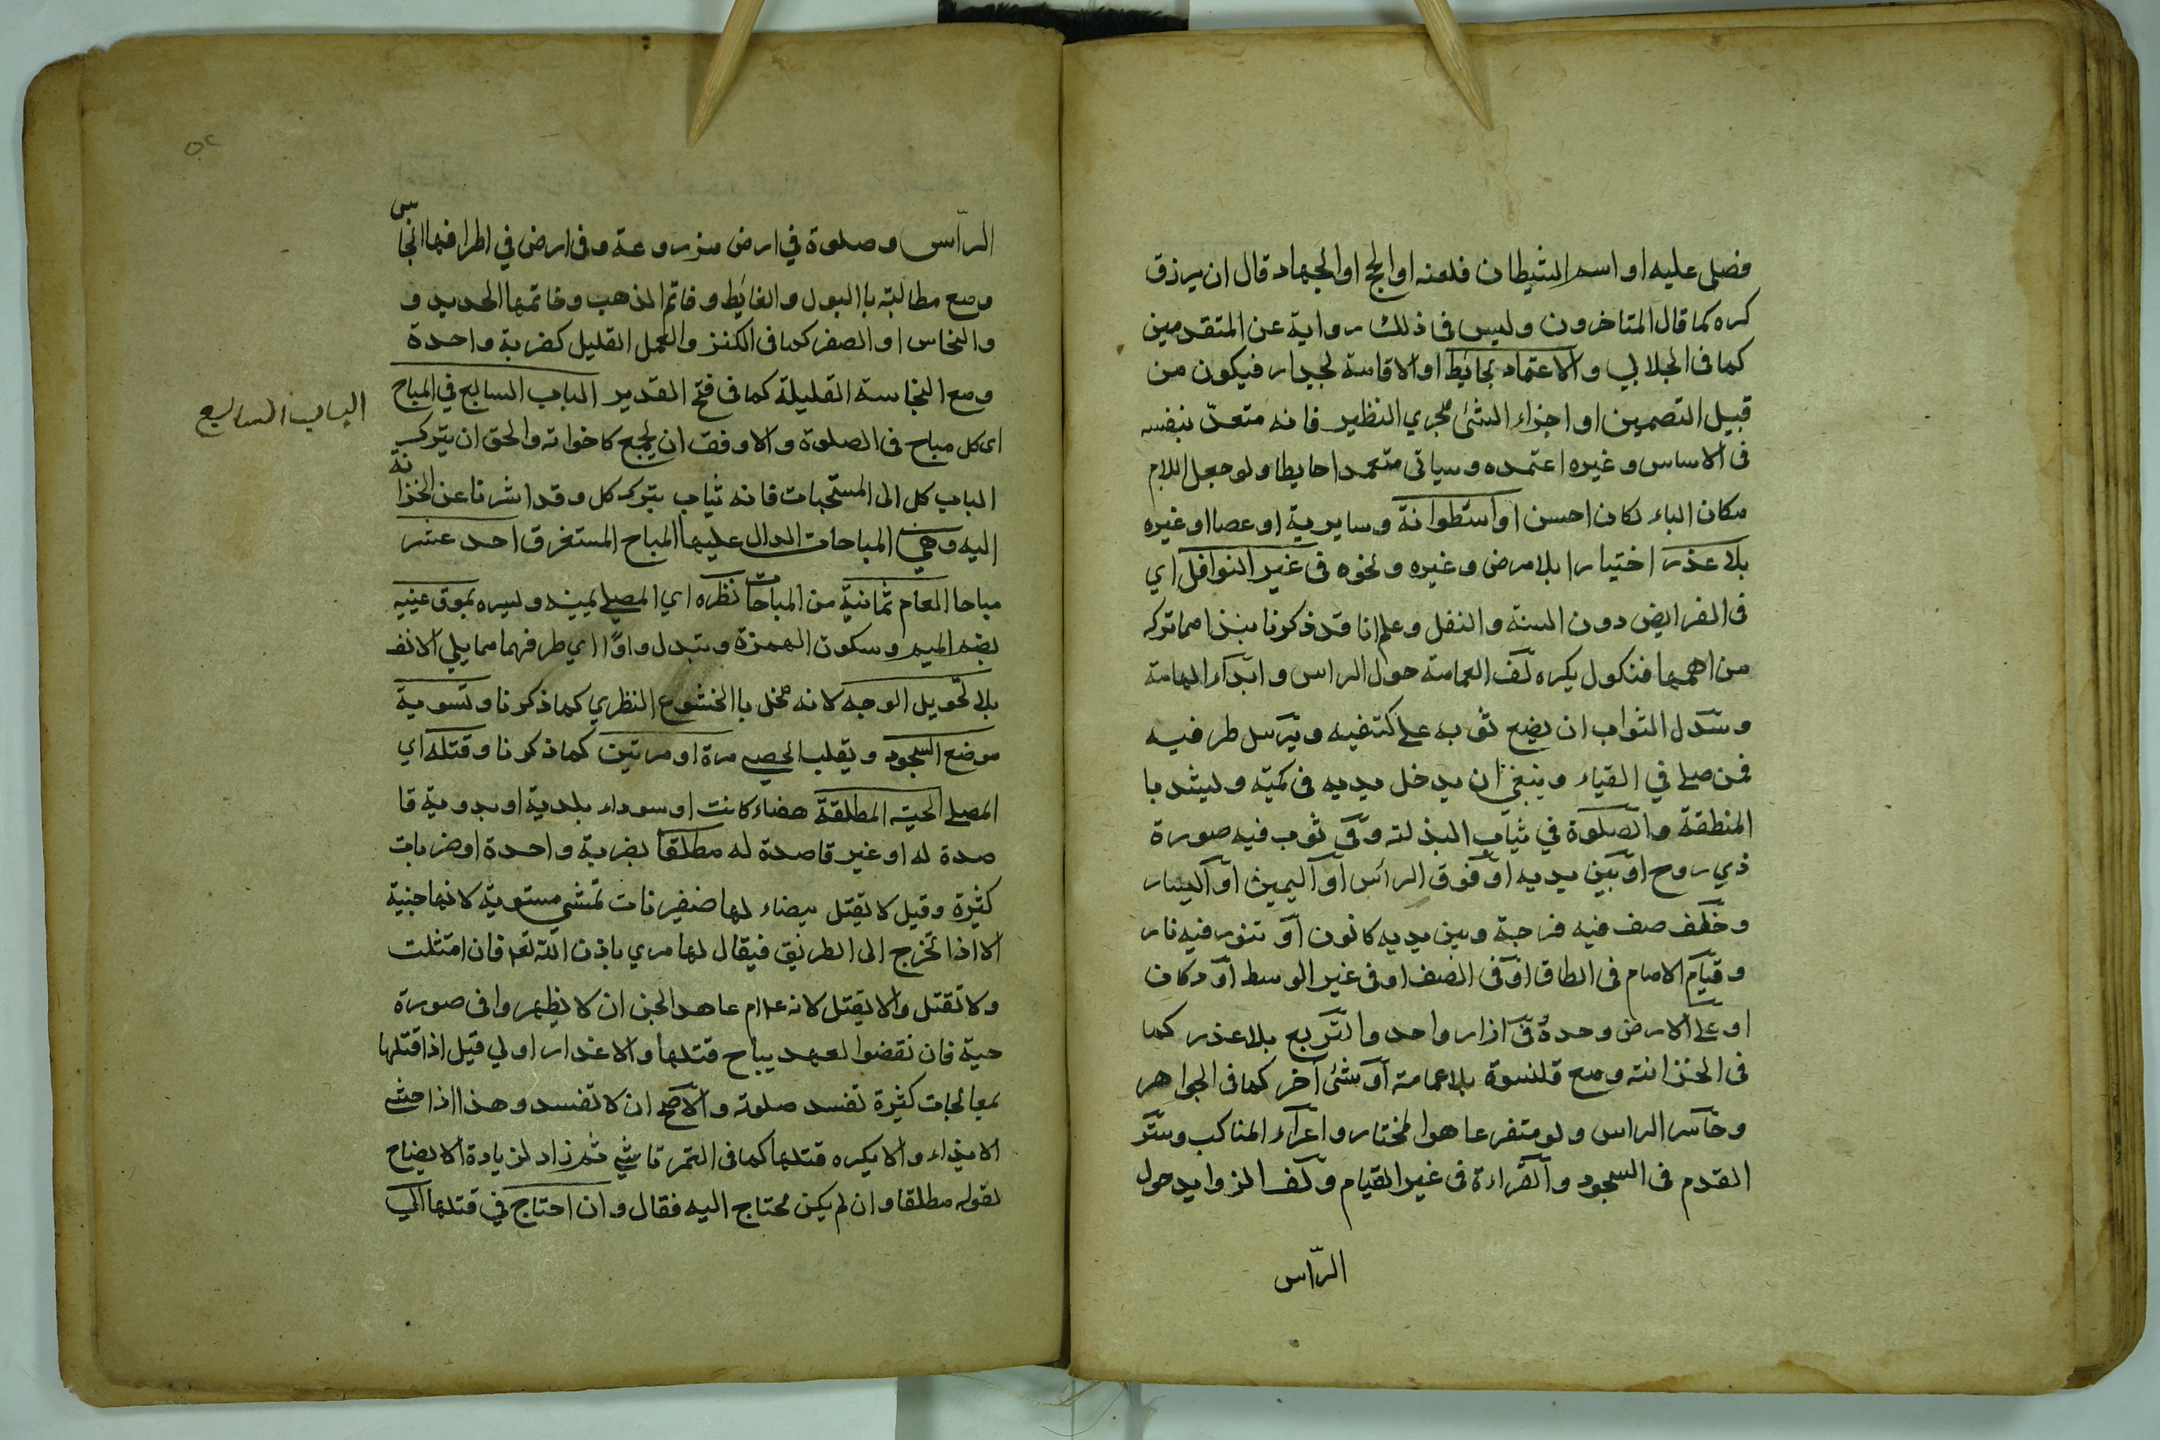 فصلى عليه او اسم الشيطان فلعنه او الحج او الجهاد قال ان يرزق
كره كما قال المتاخرون وليس فى ذلك رواية عن المتقدمين
كما فى الجلابي والاعتماد بحائط او الاقامة لجدار فيكون من
قبيل التضمين او اجزاء الشئ مجري النظير فانه متعدّ بنفسه
فى الاساس وغيره اعتمده وسياتى متعمدا حايطا ولو جعل اللام
مكان الباء لكان احسن او استطوانة وسايرية او عصا او غيره
بلا عذر اختيارا بلا مرض وغيره ونحوه فى غير النوافل اي
فى الفرايض دون السنة والنفل وعلم انا قد ذكرنا نبذا مما تركه
من اهمها فنكول يكره لف العمامة حول الراس وابداء الهامة
وسدل الثواب ان يضع ثوبه على كتفيه ويرسل طرفيه
فمن صلى في القباء وينبغي ان يدخل يديه فى كميه وليشد با
المنطقة والصلوة في ثياب البذلته وفى ثوب فيه صورة
ذي روح او بين يديه او فوق الرأس او اليمين او اليسار
وخلف صف فيه فرجة وبين يديه كانون او تنور فيه نار
وقيام الامام فى الطاق او فى الصف او فى غير الوسط او دكان
او على الارض وحده وفى ازار واحد والتربع بلا عذر كما
فى الخزانته ومع قلنسوة بلا عمامته او شئ آخر كما فى الجواهر
وخاسر الراس ولو متفرعا هوا لمختار واعراء المناكب وستر
القدم فى السجود والقراءة فى غير القيام ولف الزوايد حول
الرّاس
الرّاس وصلوة في ارض مزروعة وفى ارض في اطرافها النجاسة
ومع مطالبته با البول والغايط وخاتم الذهب وخاتمها الحديد و
والنحاس او الصفر كما فى الكنز والعمل القليل كضربة واحدة
ومع النجاسة القليلة كما فى فتح القدير الباب السابع في المباح
الباب السابع
اى كل مباح فى الصلوة والاوفق ان يجمع كاخواته والحق ان يترك
الباب كل الى المستحبات فانه ثياب بترك كل وقد اشرنا عن الخزانة
اليه وهي المباحات الدال عليها المباح المستغرق احد عشر
مباحا العام ثمانية من المباحات نظره اي المصلي يمينه ويسره بموق عينيه
بضم الميم وسكون الهمزة وتبدل واوًا اي طرفهما مما يلي الانف
بلا تحويل الوجه لانه مخل با الخشوع النظري كما ذكرنا وتسوية
موضع السجود وتقليب الحصى مرة او مرتين كما ذكرنا وقتله اي
المصلي الحية المطلقة بيضاء كانت او سوداء بلدية او بدوية قا
صدة له او غير قاصدة له مطلقا بضربة واحدة او ضربات
كثيرة وقيل لا يقتل بيضاء لها ضفيرنات تمشي مستوية لانها جنية
الا اذا تخرج الى الطريق فيقال لها مري باذن الله تعم فان امتثلت
ولا تقتل والا يقتل لانه علام عاهد الجن ان لا يظهروا فى صورة
حية فان نقضوا العهد يباح قتلها والاعذار اولي قيل اذا قتلها
بمعالجات كثيرة تفسد صلوته والاصح ان لا تفسد وهذا اذا خشى
الايذاء والا يكره قتلها كما فى التمرتاشي ثم زاد لزيادة الايضاح
لقوله مطلقا وان لم يكن محتاج اليه فقال وان احتاج في قتلها الي